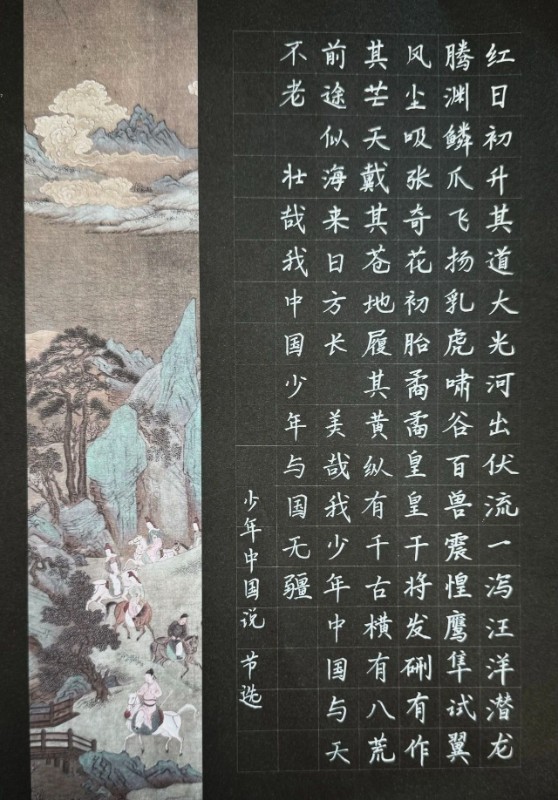 红日初升其道大光河出伏流一泻汪洋潜龙
腾渊鳞爪飞扬乳虎啸谷百兽震惶鹰隼试翼
风尘吸张奇花初胎矞矞皇皇干将发硎有作
其芒天戴其苍地履其黄纵有千古横有八荒
前途似海来日方长 美哉我少年中国与天
不老 壮哉我中国少年与国无疆
少年中国说 节选